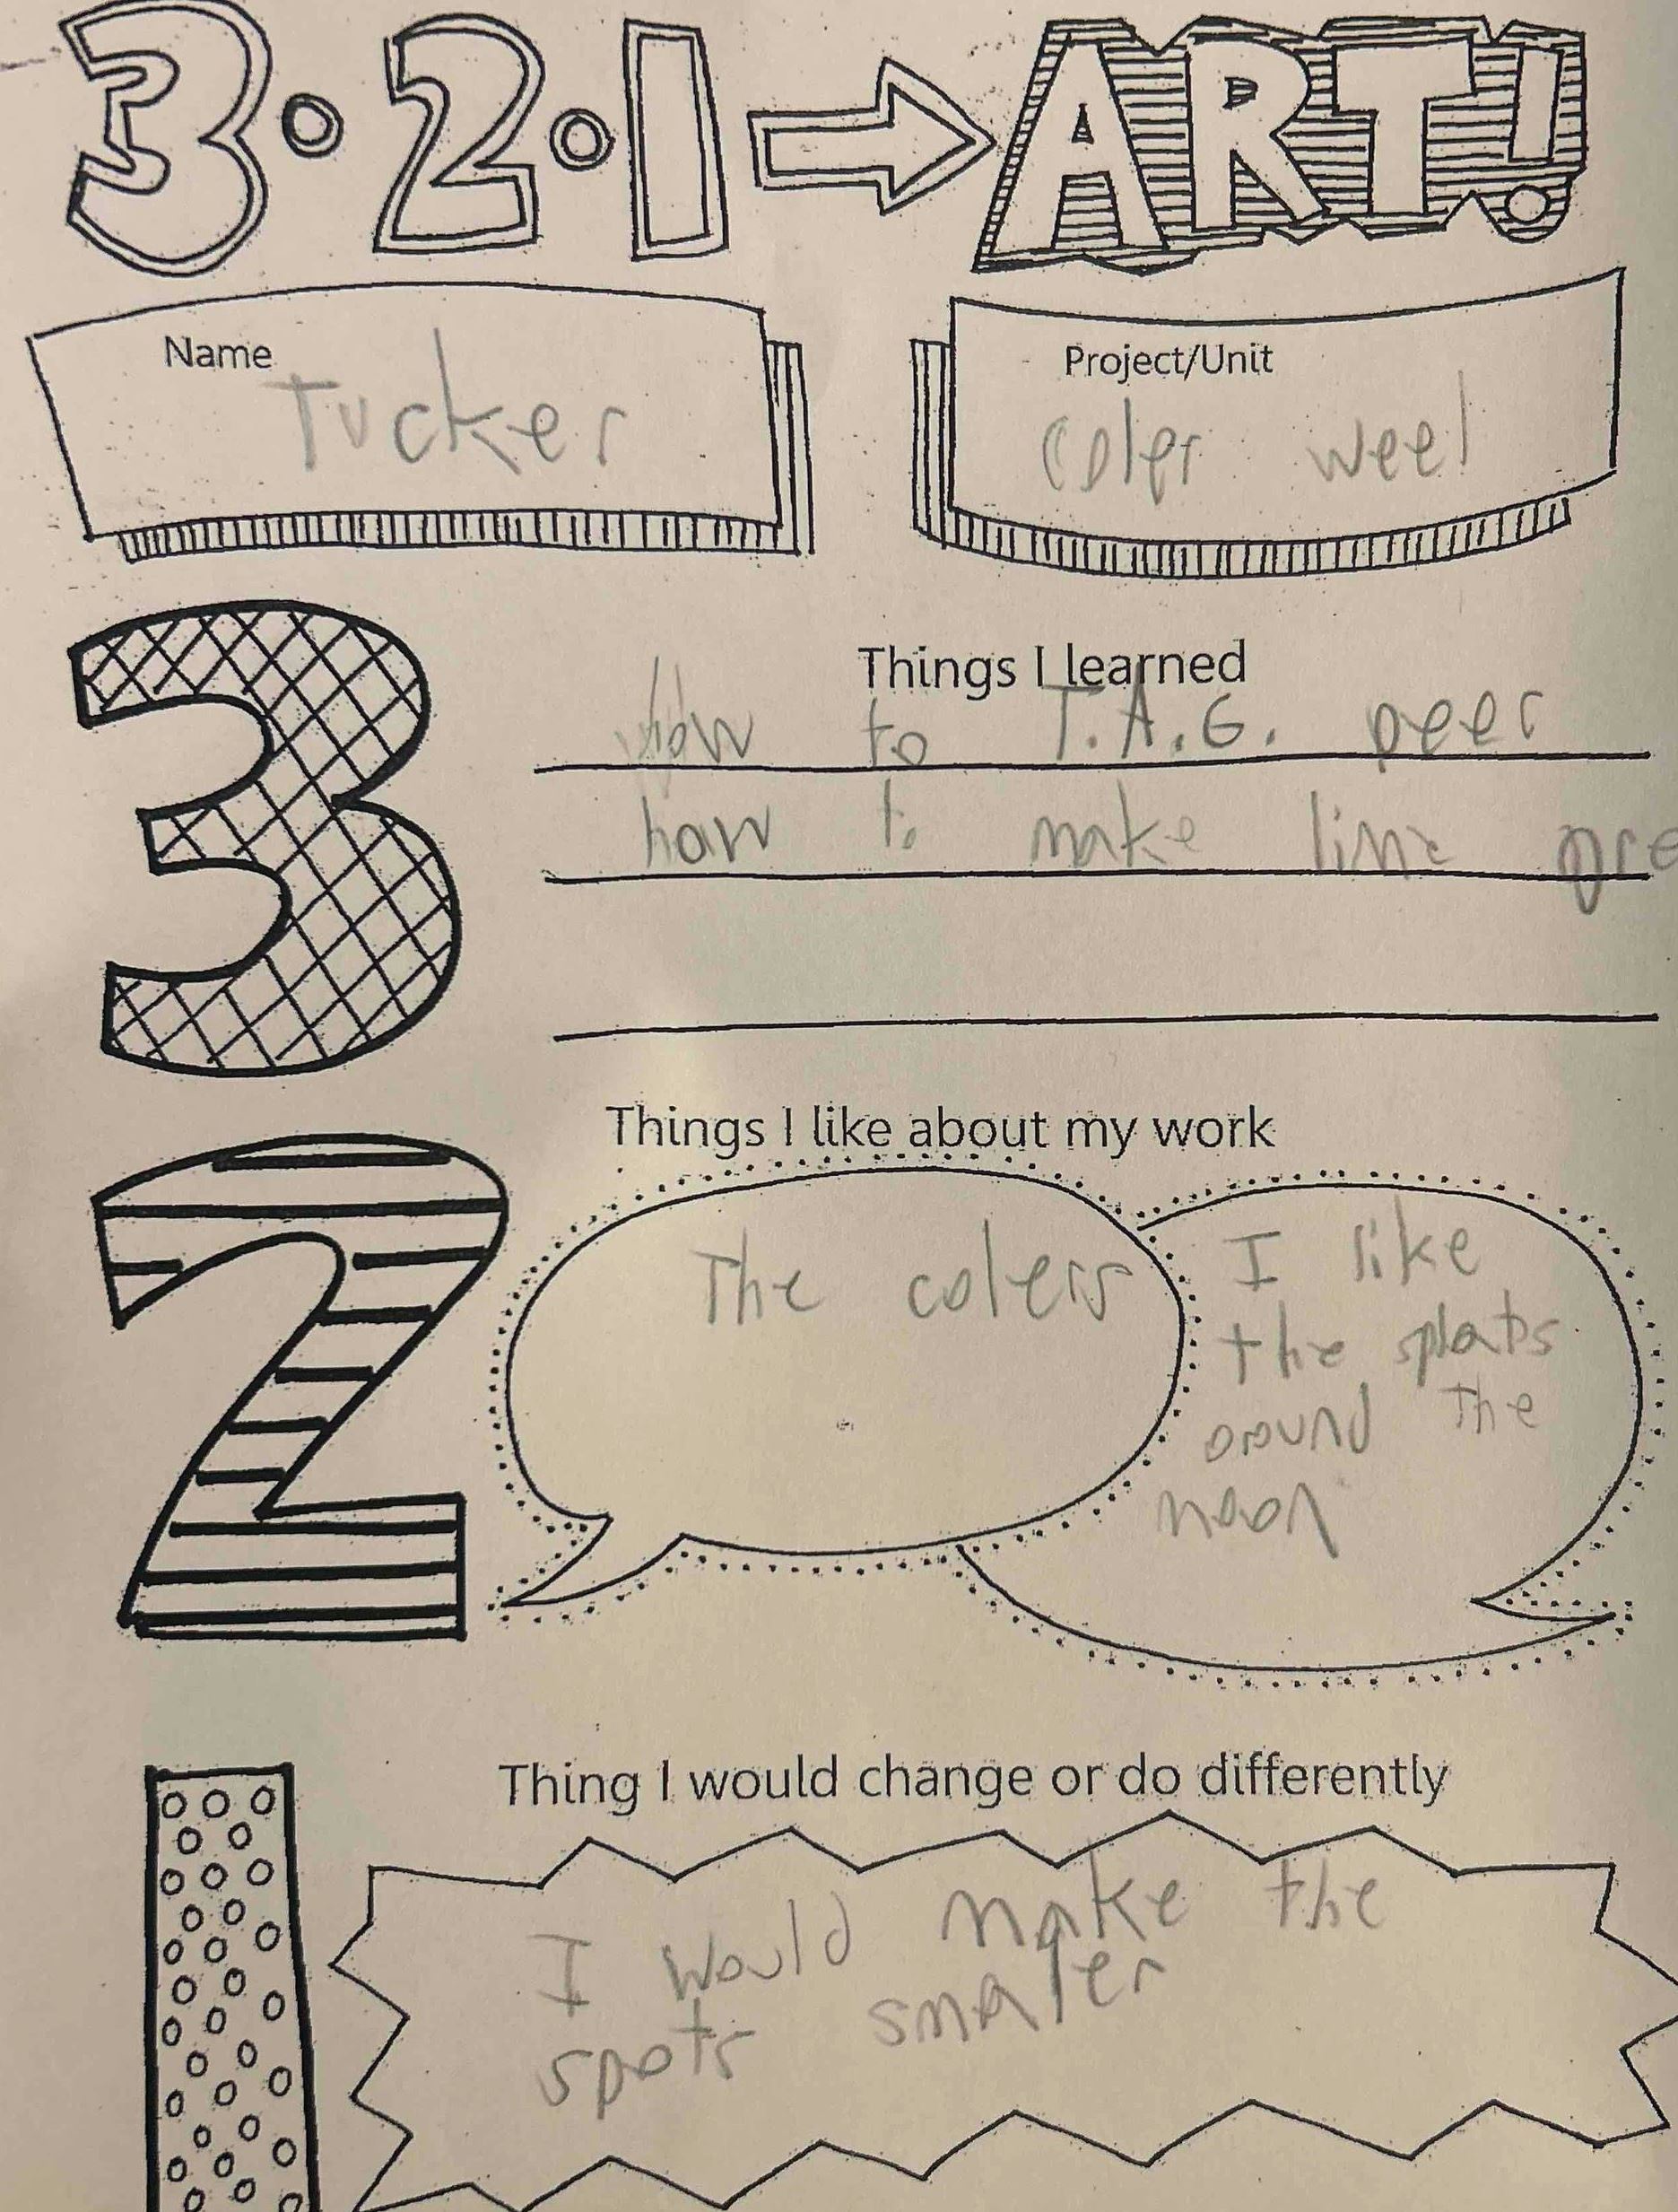 3·2·1 → ART!
Name
Tucker
Project/Unit
Coler weel
3
Things I learned
how to T.A.G. peer
how to make line gre
2
Things I like about my work
The colers
I like
the splats
around the
moon
1
Thing I would change or do differently
I would make the
spots smaler